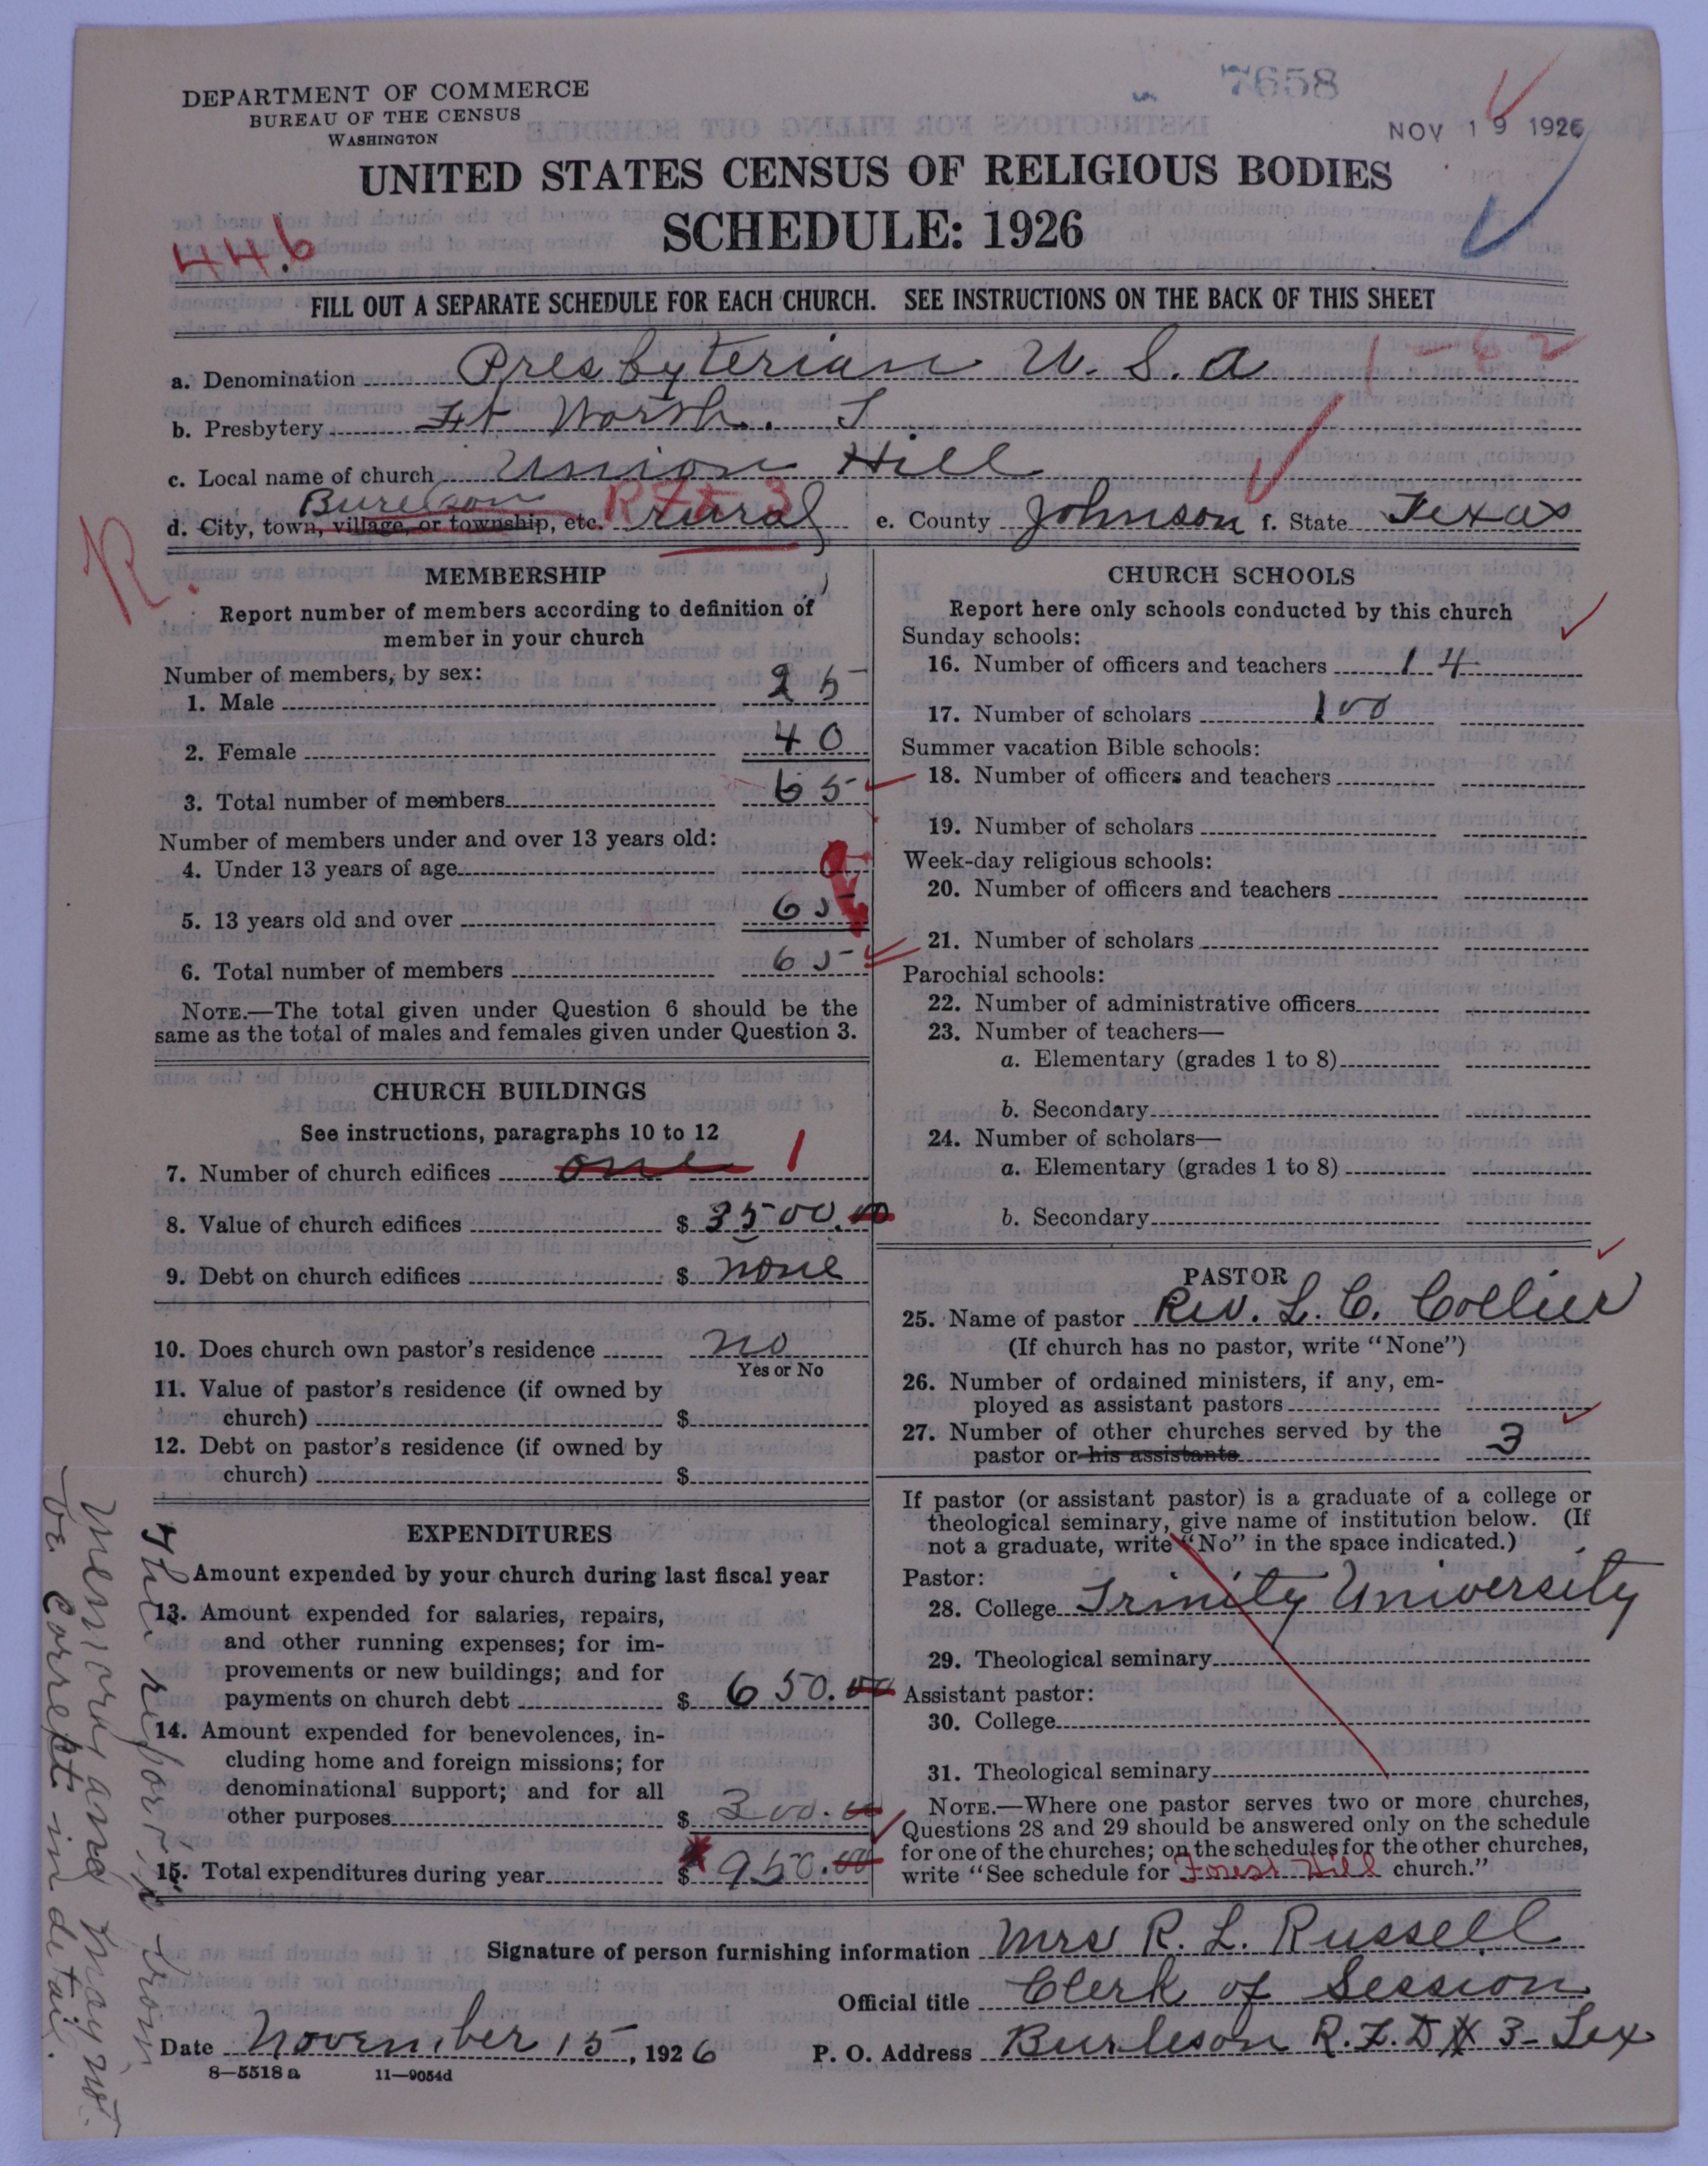 7658
DEPARTMENT OF COMMERCE
BUREAU OF THE CENSUS
WASHINGTON
NOV 19 1926
UNITED STATES CENSUS OF RELIGIOUS BODIES
SCHEDULE: 1926
446
FILL OUT A SEPARATE SCHEDULE FOR EACH CHURCH. SEE INSTRUCTIONS ON THE BACK OF THIS SHEET
a. Denomination Presbyterian U. S. a 1-62
b. Presbytery Ft Worth. T
c. Local name of church Union Hill
Burleson R Ft 3
d. City, town, village, or township, etc. rural e. County Johnson f. State Texas
R.
MEMBERSHIP
Report number of members according to definition of
member in your church
Number of members, by sex:
1. Male 25
2. Female 40
3. Total number of members 65
Number of members under and over 13 years old:
4. Under 13 years of age
5. 13 years old and over 65
6. Total number of members 65
NOTE.—The total given under Question 6 should be the
same as the total of males and females given under Question 3.
CHURCH BUILDINGS
See instructions, paragraphs 10 to 12
7. Number of church edifices one 1
8. Value of church edifices $ 3500.00
9. Debt on church edifices $ none
10. Does church own pastor's residence no
Yes or No
11. Value of pastor's residence (if owned by
church) $
12. Debt on pastor's residence (if owned by
church) $
EXPENDITURES
Amount expended by your church during last fiscal year
13. Amount expended for salaries, repairs,
and other running expenses; for im-
provements or new buildings; and for
payments on church debt $ 650.00
14. Amount expended for benevolences, in-
cluding home and foreign missions; for
denominational support; and for all
other purposes $ 300.00
15. Total expenditures during year $ 950.00
CHURCH SCHOOLS
Report here only schools conducted by this church
Sunday schools:
16. Number of officers and teachers 14
17. Number of scholars 100
Summer vacation Bible schools:
18. Number of officers and teachers
19. Number of scholars
Week-day religious schools:
20. Number of officers and teachers
21. Number of scholars
Parochial schools:
22. Number of administrative officers
23. Number of teachers—
a. Elementary (grades 1 to 8)
b. Secondary
24. Number of scholars—
a. Elementary (grades 1 to 8)
b. Secondary
PASTOR
25. Name of pastor Rev. L. C. Collier
(If church has no pastor, write "None")
26. Number of ordained ministers, if any, em-
ployed as assistant pastors
27. Number of other churches served by the
pastor or his assistants 3
If pastor (or assistant pastor) is a graduate of a college or
theological seminary, give name of institution below. (If
not a graduate, write "No" in the space indicated.)
Pastor:
28. College Trinity University
29. Theological seminary
Assistant pastor:
30. College
31. Theological seminary
NOTE.—Where one pastor serves two or more churches,
Questions 28 and 29 should be answered only on the schedule
for one of the churches; on the schedules for the other churches,
write "See schedule for Forest Hill church."
Signature of person furnishing information Mrs R. L. Russell
Official title Clerk of Session
Date November 15, 1926 P. O. Address Burleson R.F.D # 3 Tex
8—5518 a 11—9054d
This report is from
memory and may not
be correct in detail.